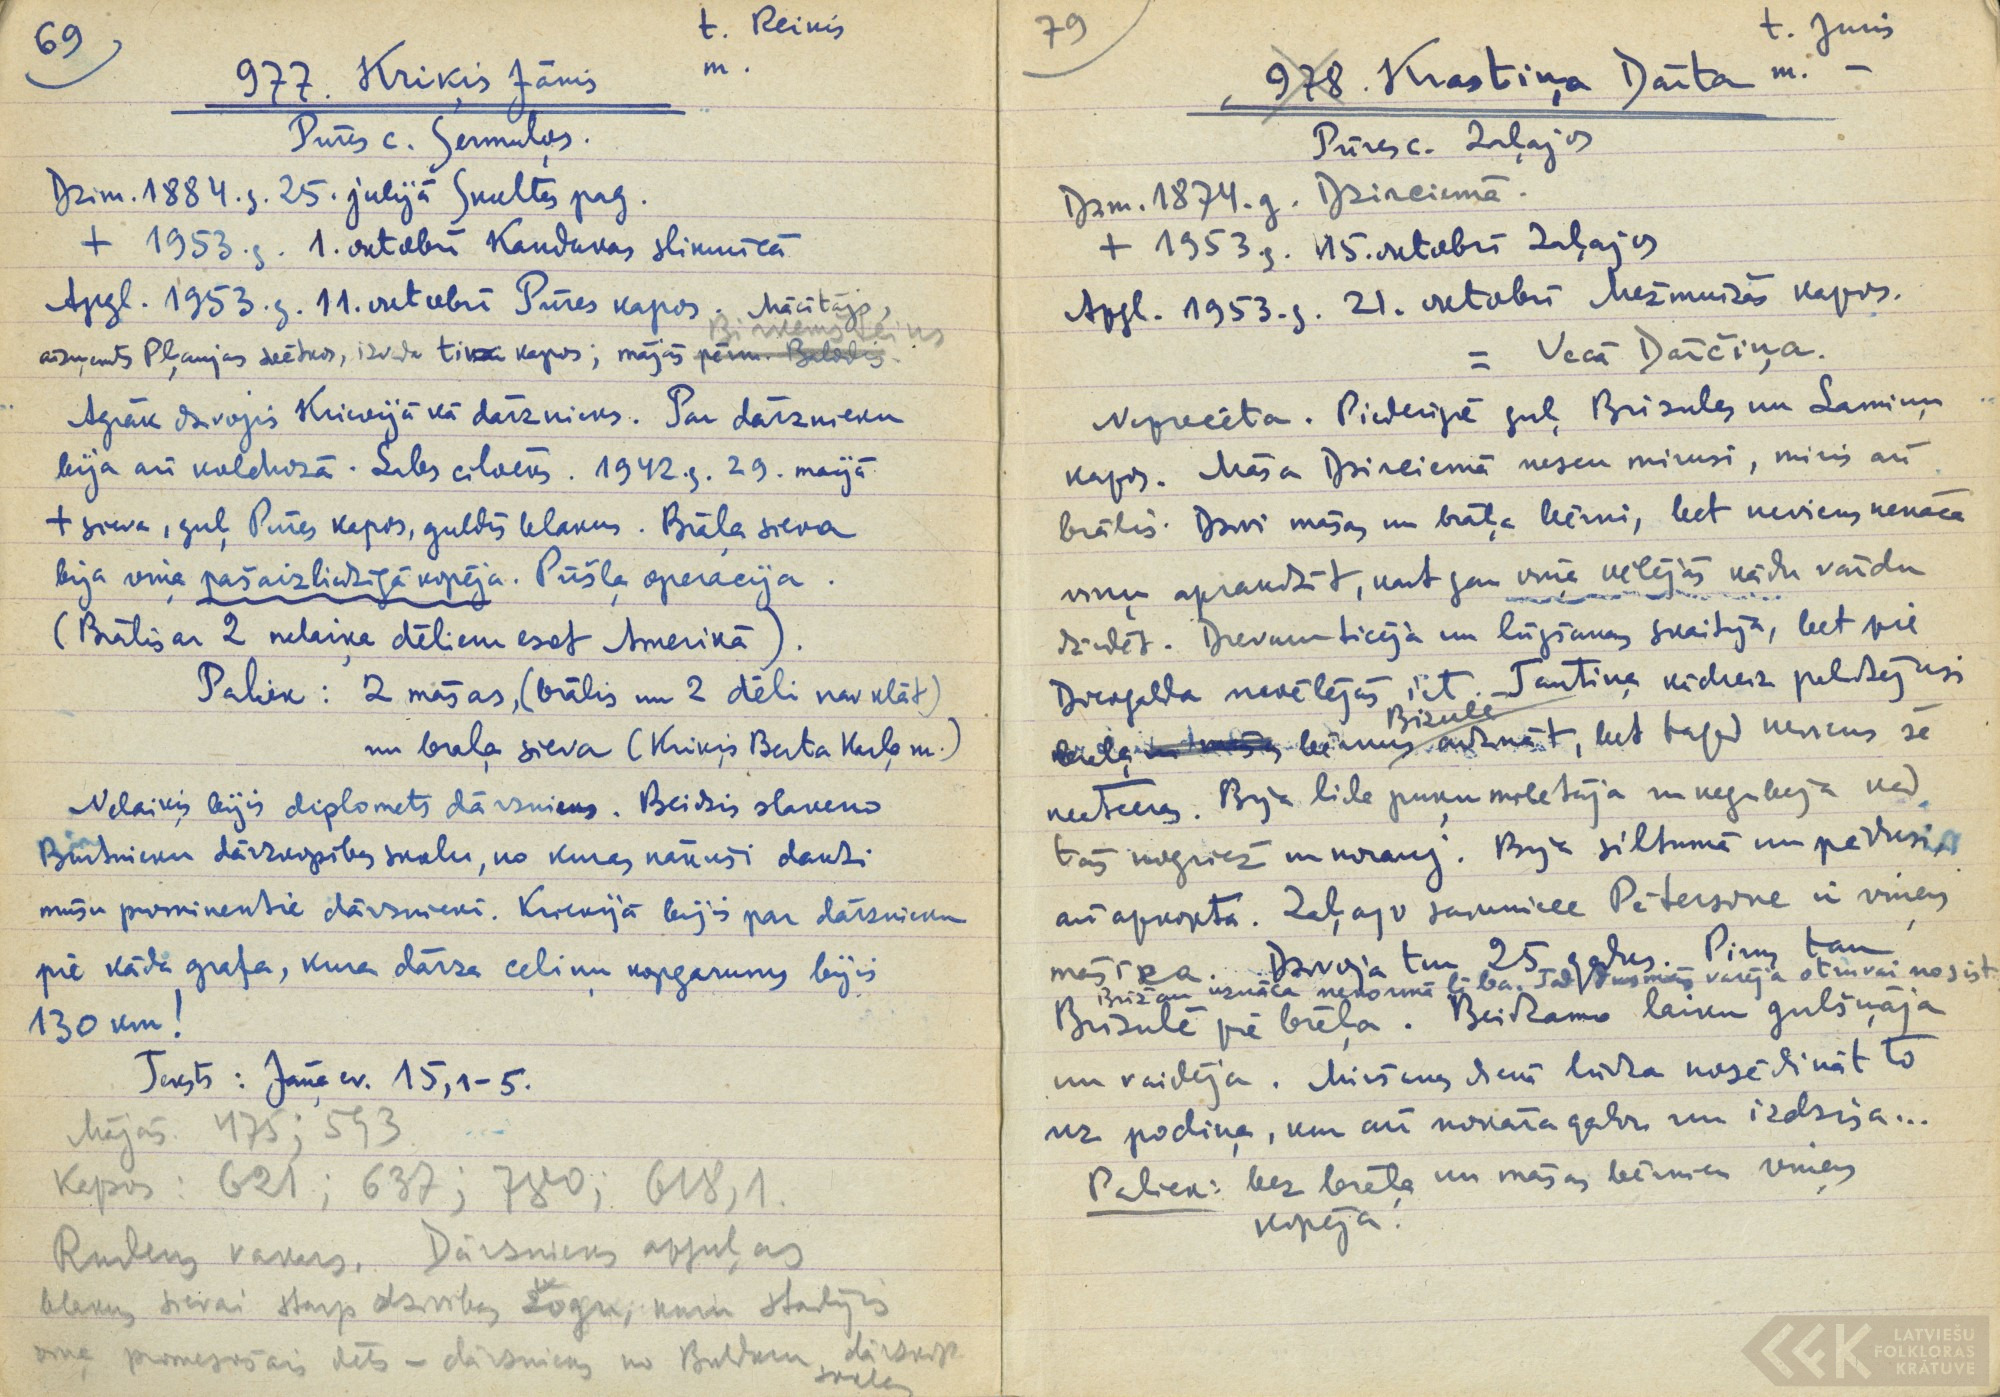 69
t. Reinis
m.
977. Kriķis Jānis
Pūres c. Sermuļos.
Dzim. 1884. g. 25. julijā Skultes pag.
+ 1953. g. 1. oktobrī Kandavas slimnīcā
Apgl. 1953. g. 11. oktobrī Pūres kapos. Mācītājs,
aizņemts Pļaujas svētkos, izvada tikai kapos; mājās pērm. Balodis.
Agrāk dzīvojis Krievijā kā dārznieks. Par dārznieku
bija arī kolchozā. Labs cilvēks. 1942. g. 29. maijā
+ sieva, guļ Pūres kapos, guldīs blakus. Brāļa sieva
bija viņa pašaizliedzīgā kopēja. Pūšļa operācija.
(Brālis ar 2 nelaiķa dēliem esot Amerikā).
Paliek: 2 māsas, (brālis un 2 dēli nav klāt)
un brāļa sieva (Kriķis Berta Kārļa m.)
Nelaiķis bijis diplomēts dārznieks. Beidzis slaveno
dārzkopības skolu, no kuras nākuši daudzi
mūsu prominentie dārznieki. Krievijā bijis par dārznieku
pie kāda grafa, kura dārza celiņu kopgarums bijis
130 km!
Teksts: Jāņa ev. 15, 1-5.
Mājās 475; 593
Kapos: 621; 637; 780; 618, 1.
Rudens vakars. Dārznieks apguļas
blakus sievai starp dzīvības žogu, kuru stādījis
viņa promesošais dēls – dārznieks no Bulduru dārzkop.
skolas
79
t. Juris
m. –
978. Krastiņa Dārta
Pūres c. Zaļajos
Dzim. 1874. g. Dzirciemā.
+ 1953. g. 15. oktobrī Zaļajos
Apgl. 1953. g. 21. oktobrī Mežmuižas kapos.
= Vecā Dārčiņa.
Neprecēta. Piederīgie guļ Brizules un Lamiņu
kapos. Māsa Dzirciemā nesen mirusi, miris arī
brālis. Dzīvi māsas un brāļa bērni, bet neviens nenāca
viņu apraudzīt, kaut gan viņa vēlējās kādu vārdu
dzirdēt. Dievam ticēja un lūgšanas skaitīja, bet pie
Dievgalda nevēlējās iet. Tantiņa kādreiz palīdzējusi
Brizulē
brāļa bērnus audzināt, bet tagad neviens šē
neatceras. Bija liela puķu mīļotāja un negribēja kad
tās nogriež un norauj. Bija siltumā un paēdusi,
arī apkopta. Zaļajo saimniece Pētersone ir viņas
māsīca. Dzīvoja tur 25 gadus. Pirms tam
Brīžam uznāca nervozā Tad dusmās varēja otru vai nosist
Brizulē pie brāļa. Beidzamo laiku gulšņāja
un vaidēja. Miršanas dienā lūdza nosēdināt to
uz podiņa, kur arī nokāra galvu un izdzisa...
Paliek: bez brāļa un māsas bērniem viņas
kopēja.
LATVIEŠU
FOLKLORAS
KRĀTUVE